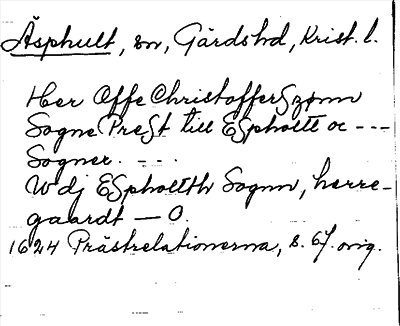 Äsphult, sn, Gärds hd, Krist. l.
Her Offe Christoffer Szønn
Sogne Prest till Espholtt oc ---
Sogner. ---
W dj Espholtth Sognn, herre-
gaardt — O.
1624 Prästrelationerna, s. 67. orig.